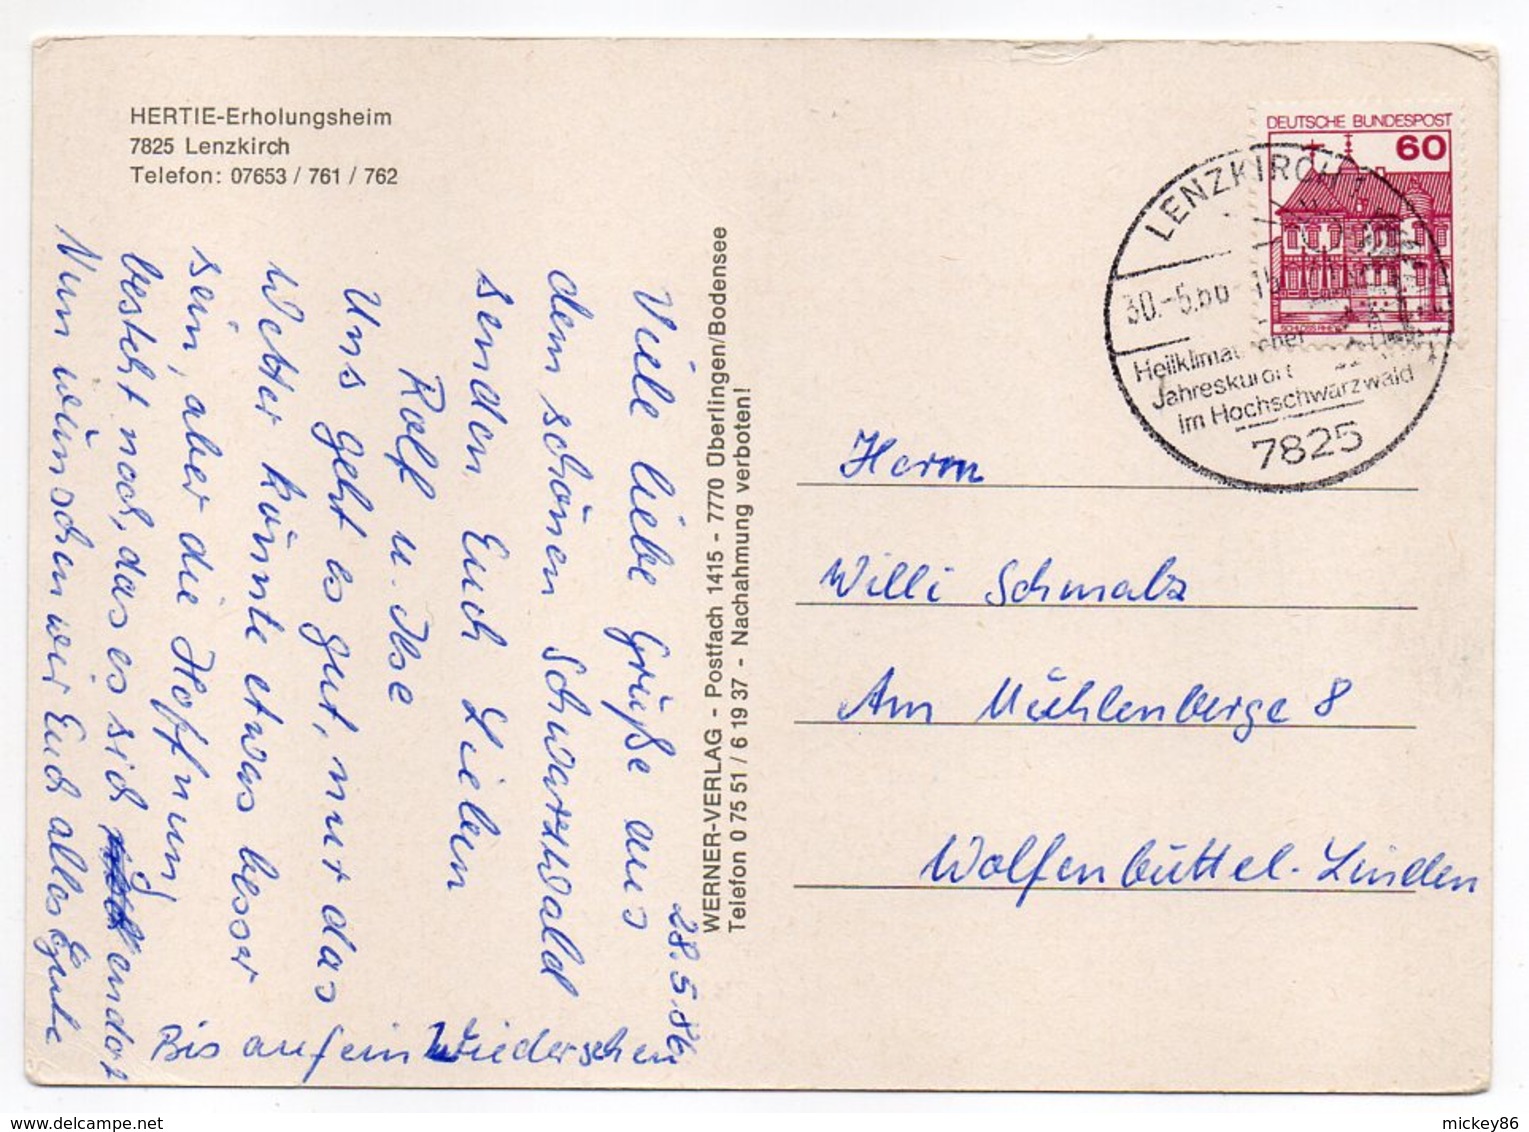 HERTIE-Erholungsheim
7825 Lenzkirch
Telefon: 07653 / 761 / 762
28.5.86
Viele liebe Grüße aus
dem schönen Schwarzwald
senden Euch Lieben
Rolf u. Ilse
Uns geht es gut, nur das
Wetter könnte etwas besser
sein, aber die Hoffnung
besteht noch, das es sich endat
Nun wünschen wir Euch alles Gute
Bis auf ein Wiedersehen
WERNER-VERLAG - Postfach 1415 - 7770 Überlingen/Bodensee
Telefon 0 75 51 / 6 19 37 - Nachahmung verboten!
DEUTSCHE BUNDESPOST
60
LENZKIRCH 1
30.-5.86
Heilklimatischer
Jahreskurort
im Hochschwarzwald
7825
Herrn
Willi Schmalz
Am Mühlenberge 8
Wolfenbüttel-Linden
mickey86